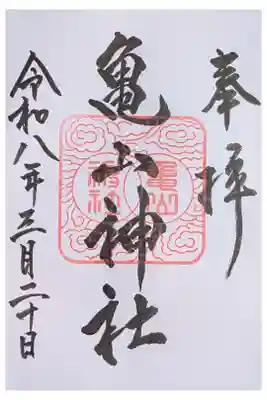 奉拝
亀山神社
亀山神社
令和八年三月二十日